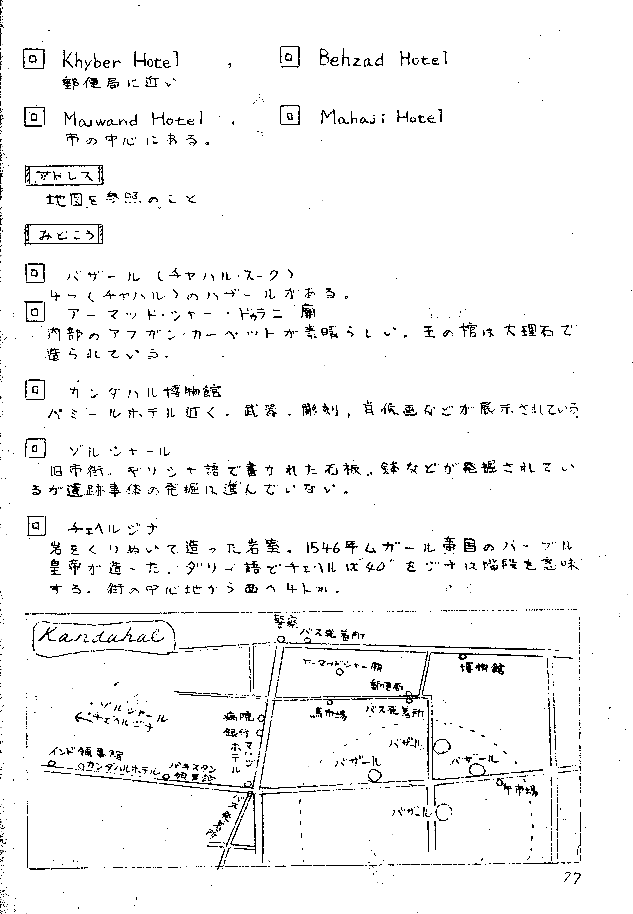 Khyber Hotel
Behzad Hotel
郵便局に近い
Maiwand Hotel
Mahaji Hotel
市の中心にある。
アドレス
地図を参照のこと
みどころ
バザール (チャハル・スーク)
4つ(チャハル)のバザールがある。
アーマッド・シャー・ドゥラニ廟
内部のアフガン・カーペットが素晴らしい。王の棺は大理石で
造られている。
カンダハル博物館
パミールホテル近く。武器、彫刻、肖像画などが展示されている
ゾルシャール
旧市街。ギリシャ語で書かれた石板、鉢などが発掘されてい
るが遺跡事体の発掘は進んでいない。
チェヘルジナ
岩をくりぬいて造った岩窟。1546年ムガール帝国のバーブル
皇帝が造った。ダリー語でチェヘルは"40"をジナは階段を意味
する。街の中心地から西へ4km。
Kandahal
警察
バス発着所
アーマッドシャー廟
博物館
郵便局
バス発着所
馬市場
ゾルシャール
チェヘルジナ
病院
銀行
ホテル
バザール
バザール
バザール
インド領事館
カンダハルホテル
パキスタン
領事館
市場
バザール
27